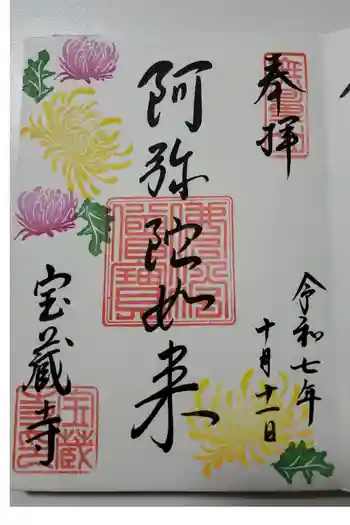 奉拝
令和七年
十月十一日
阿弥陀如来
宝蔵寺